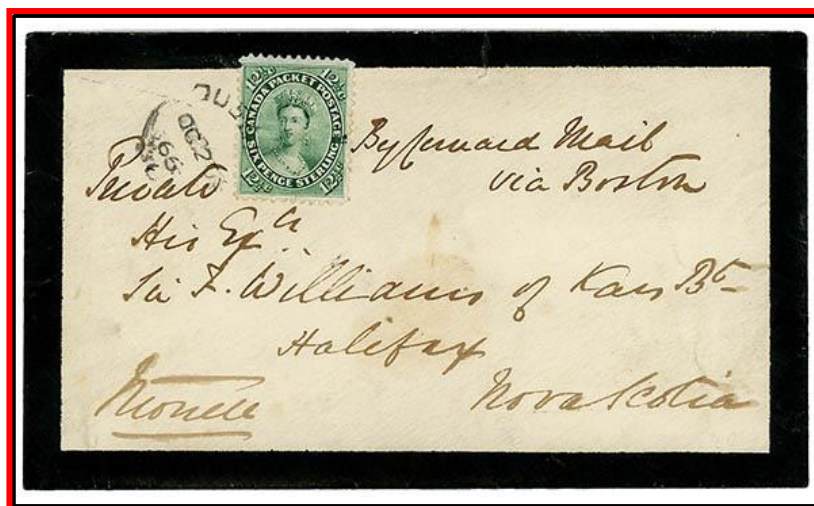 12½c 12½c
CANADA PACKET POSTAGE
SIX PENCE STERLING
12½c 12½c
OC 2
65
By Cunard Mail
via Boston
Private
His Exy
Sir F. Williams of Kars Bt
Halifax
Nova Scotia
Monck